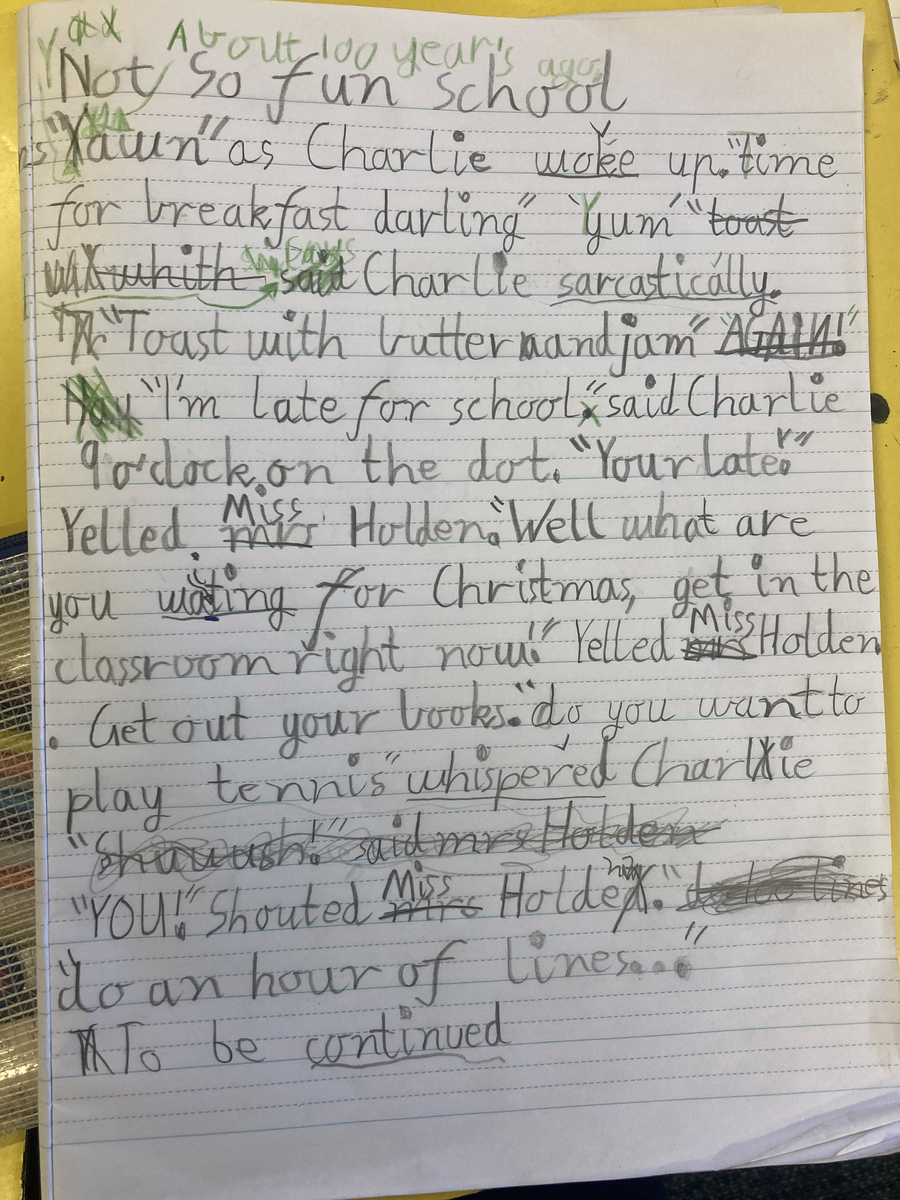 About 100 year's ago
Not so fun school
"Yawn" as Charlie woke up. "time
for breakfast darling" "Yum" "toast
whith said Charlie sarcastically.
"Toast with butter and jam" "AGAIN!"
"I'm late for school." said Charlie
9 o'clock on the dot. "Your late."
Yelled. Miss Holden. "Well what are
you waiting for Christmas, get in the
classroom right now!" Yelled Miss Holden
. Get out your books. "do you want to
play tennis" whispered Charlie
"Shauush!" said mrs Holden
"YOU!" Shouted Miss Holden. "
"do an hour of lines..."
To be continued